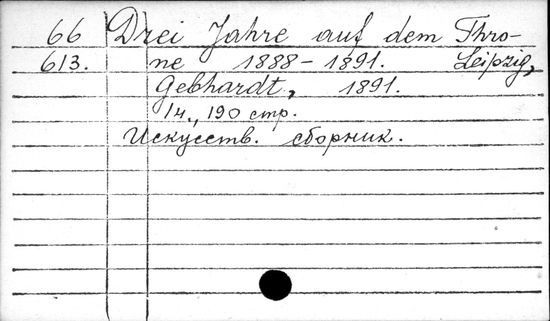 66 Drei Jahre auf dem Thro-
613. ne 1888-1891. Leipzig,
Gebhardt, 1891.
14., 190 стр.
Искусств. сборник.